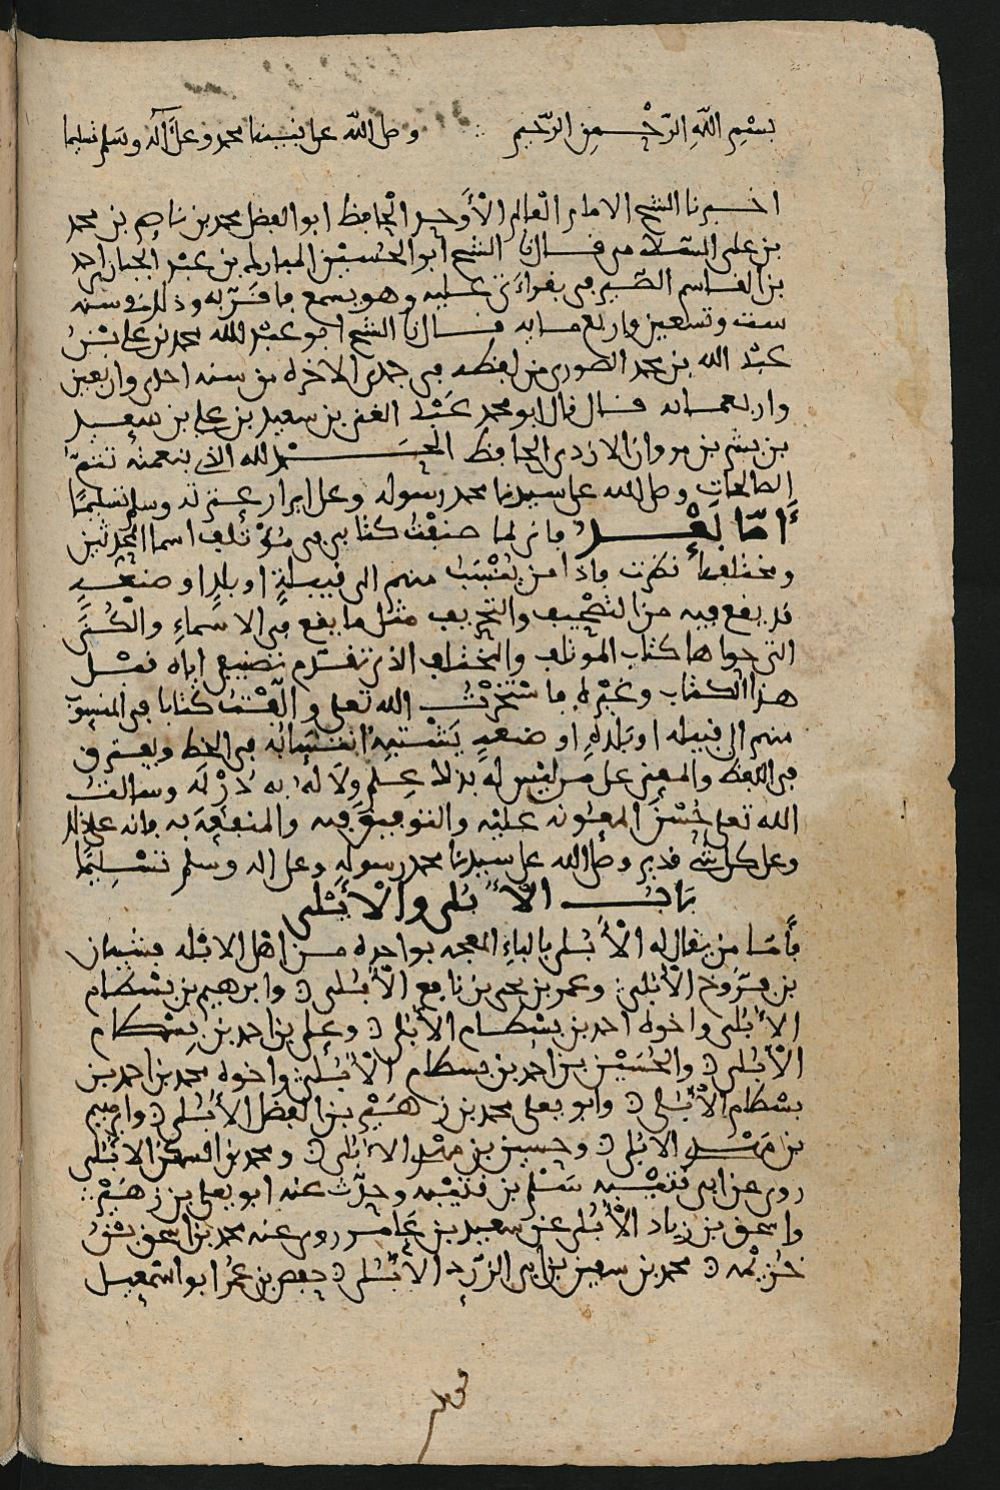 بسْمِ اللّٰهِ الرّحْمٰنِ الرّحيم وصلى اللّه على نبينا محمد وعلى آله وسَلم تسليما
اخبرنا الشيخ الامام العالم الأوحد الحافظ ابو الفضل محمد بن ناصر بن محمد
بن على السلامى قال نا الشيخ ابو الحُسَيْن المبارك بن عبْد الجبار بن احمد
بن القاسم الصَّيرفى بقراءتى عليه وهو يسمع ما قَرّ به وذلك فى سنه
ست وتسعين واربع مايه قال نا الشيخ ابو عبْد الله محمد بن على بْنُ
عبْد الله بن محمد الصورى من لفظه فى جمدى الاخره من سنه احدى واربعين
واربعمايه قال قال ابو محمد عَبْد الغنى بن سعيد بن على بن سعيد
بن بشر بن مروان الازدى الحافظ الحَمْد لله الذى بنعمته تتمّ
الصالحات وصلى الله على سيدنا محمد رسوله وعلى ابرار عترته وسلم تسليمًا
أَمّا بَعْد فانى لما صنفْتُ كتابى فى مُؤْتلف اسما المُحَدثين
ومختلفها نظرت فاذا من يُنْسَبُ منهم الى قبيلةٍ او بلدٍ او صنعَهٍ
قد يقع فيه من التصْحيف والتحريف مثل ما يقع فى الاسماءِ والكُنَى
التى حواها كتاب الموتلف والمختلف الذى تقدّم تصنيفى اياه قبْل
هذا الكتاب وغيْره فاسْتَخرْتُ الله تعلى والّفْتُ كتابا فى المنسوبِين
منهم الى قبيله او بَلدهٍ او صنعهٍ يَشْتبِهُ انتسَابُه فى الخط ويفترق
فى اللفظ والمعنى على من ليْس له بذلا عِلم ولَا لهُ به دَرْبَه وسالْتُ
الله تعلى حُسْنَ المعُونه عليْه والتوفيق فيه والمنفعَهَ به فانه على ذلك
وعلى كل شَى قدير وصلى الله على سيدنا محمد رسوله وعلى اله وسلم تسْلِيمًا
بَابُ الأُبُلى والأَيْلى
فأمّا من يقال له الأُبُلى بالباءِ المعجمه بواحدهٍ من اهل الابُله فشيبان
بن فَرّوخ الأُبُلى وعمر بن يحيى بن نافع الأُبُلى وابرهيم بن بسْطام
الأُبُلى واخوه احمد بن بسْطام الأُبُلى وعلى بن احمد بن بِسْطام
الأُبُلى والحُسَيْن بن احمد بن بسطام الأُبُلى واخوه محمد بن احمد بن
بسْطام الأُبُلى وابو يعلى محمد بن زهيْر بن الفضل الأُبُلى وابرهيم
بن فهْد الأبُلى وحسين بن مهْدٍ الأُبُلى ومحمد بن السكن الأُبُلى
روى عن ابى قتيْبه سَلْم بن قتيْبه وحدّث عنه ابو يعلى بن زهَيْر
واسحق بن زياد الأُبُلى عن سعيد بن عامر روى عنه محمد بن اسحق بْنُ
خزيْمه محمد بن سفين بن ابى الزَّرد الأُبُلى حفص بن عُمر ابو اسْمعيل